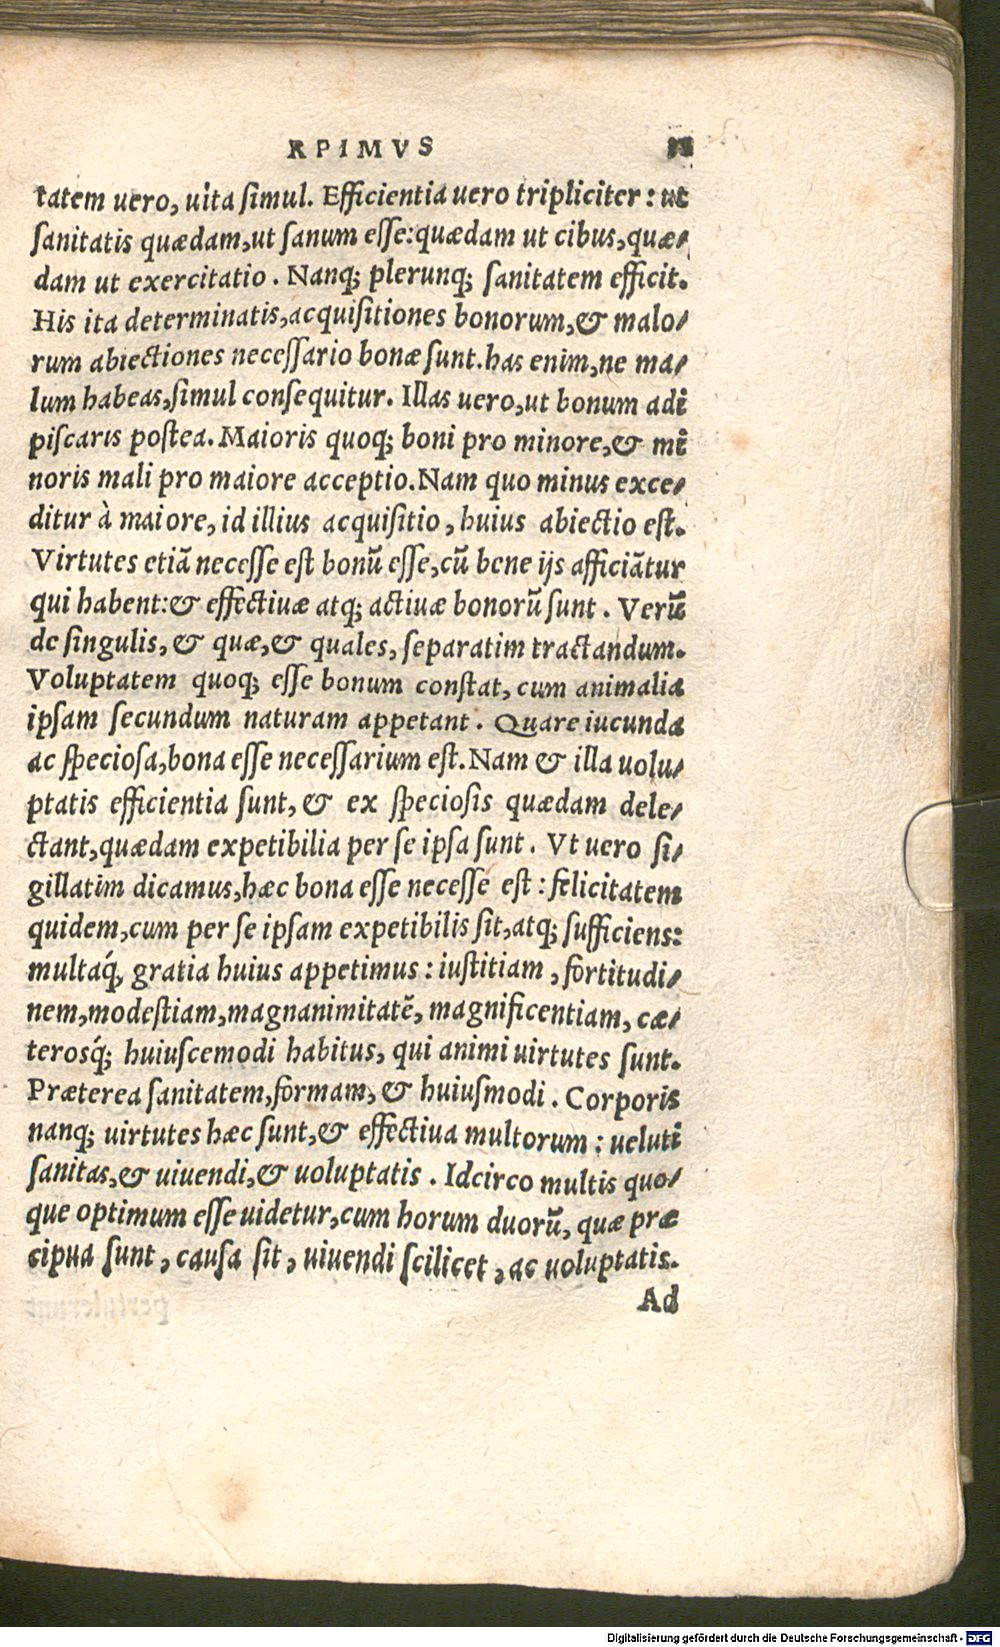 RPIMVS
tatem uero, uita simul. Efficientia uero tripliciter: ut
sanitatis quædam, ut sanum esse: quædam ut cibus, quæ-
dam ut exercitatio. Nanq; plerunq; sanitatem efficit.
His ita determinatis, acquisitiones bonorum, & malo-
rum abiectiones necessario bonæ sunt. has enim, ne ma-
lum habeas, simul consequitur. Illas uero, ut bonum adi
piscaris postea. Maioris quoq; boni pro minore, & mi
noris mali pro maiore acceptio. Nam quo minus exce-
ditur à maiore, id illius acquisitio, huius abiectio est.
Virtutes etiā necesse est bonū esse, cū bene ijs afficiātur
qui habent: & effectiuæ atq; actiuæ bonorū sunt. Verū
de singulis, & quæ, & quales, separatim tractandum.
Voluptatem quoq; esse bonum constat, cum animalia
ipsam secundum naturam appetant. Quare iucunda
ac speciosa, bona esse necessarium est. Nam & illa uolu-
ptatis efficientia sunt, & ex speciosis quædam dele-
ctant, quædam expetibilia per se ipsa sunt. Vt uero si-
gillatim dicamus, hæc bona esse necesse est: felicitatem
quidem, cum per se ipsam expetibilis sit, atq; sufficiens:
multaq́; gratia huius appetimus: iustitiam, fortitudi-
nem, modestiam, magnanimitatē, magnificentiam, cæ-
terosq́; huiuscemodi habitus, qui animi uirtutes sunt.
Præterea sanitatem, formam, & huiusmodi. Corporis
nanq; uirtutes hæc sunt, & effectiua multorum: ueluti
sanitas, & uiuendi, & uoluptatis. Idcirco multis quo-
que optimum esse uidetur, cum horum duorū, quæ præ
cipua sunt, causa sit, uiuendi scilicet, ac uoluptatis.
Ad
Digitalisierung gefördert durch die Deutsche Forschungsgemeinschaft - DFG